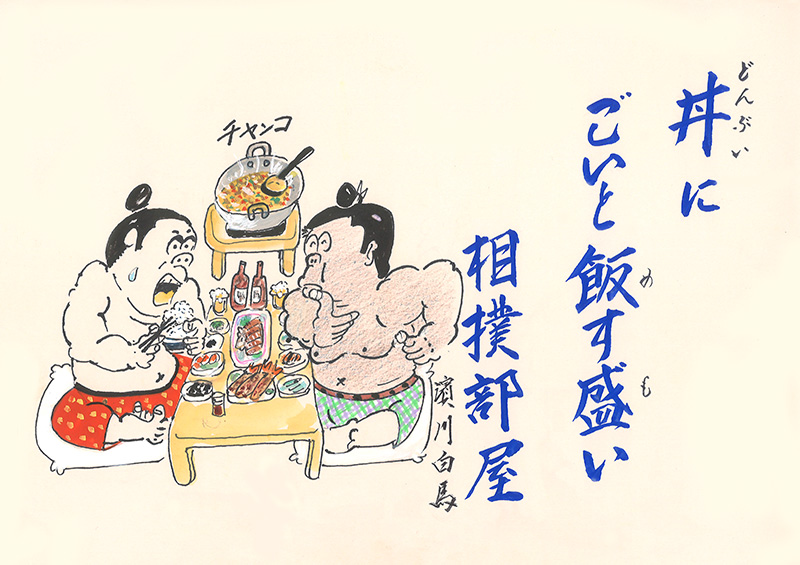 どんぶい
丼に
ごいと飯す盛い
め
も
相撲部屋
濱川白馬
チャンコ